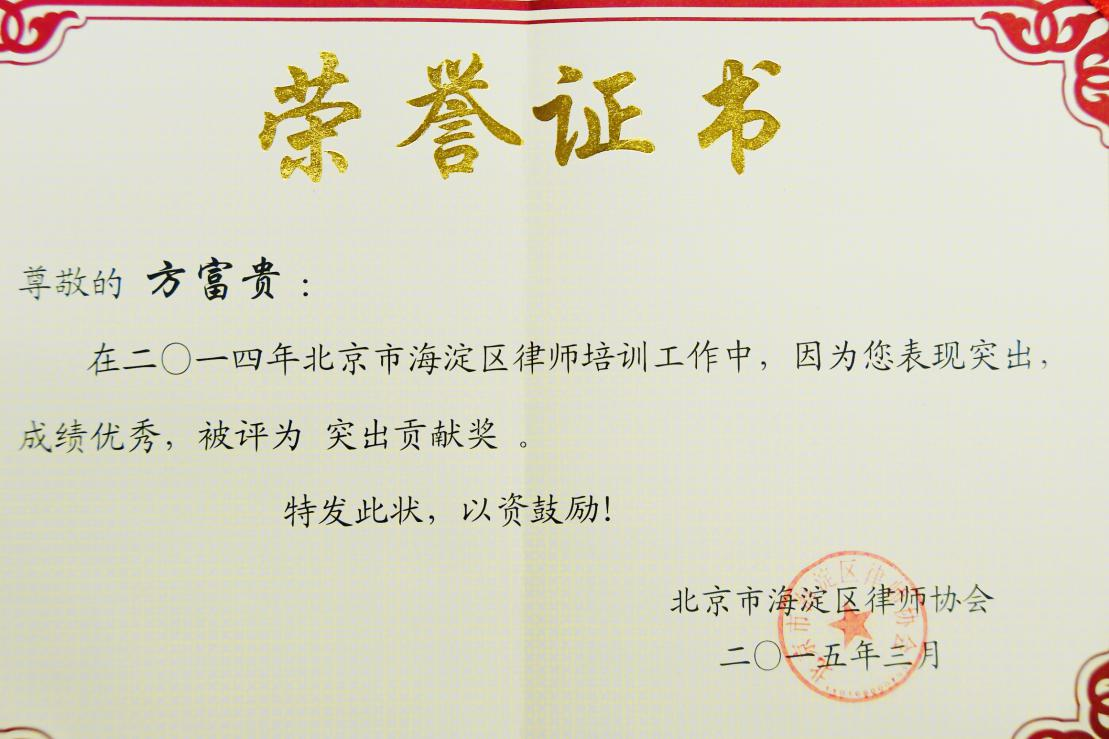 荣誉证书
尊敬的 方富贵：
在二〇一四年北京市海淀区律师培训工作中，因为您表现突出，
成绩优秀，被评为 突出贡献奖 。
特发此状，以资鼓励！
北京市海淀区律师协会
二〇一五年三月
北京市海淀区律师协会